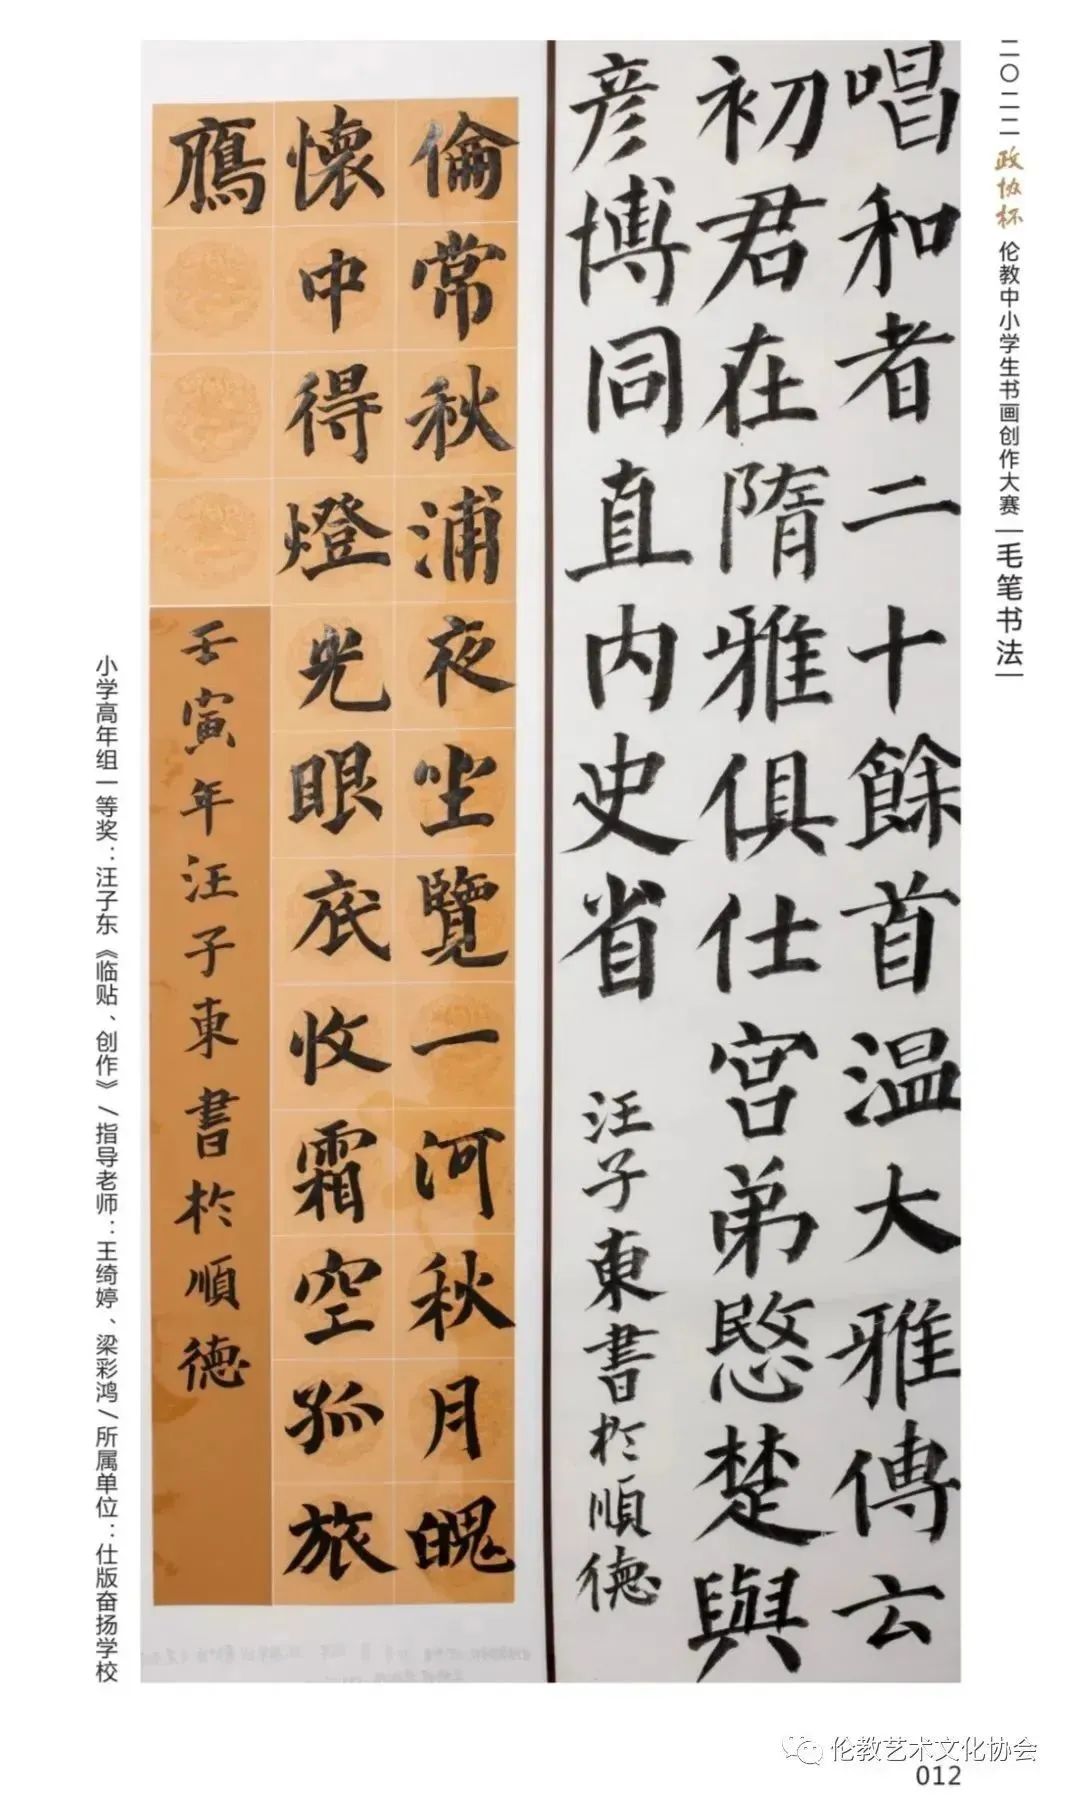 二〇二二政协杯 伦教中小学生书画创作大赛|毛笔书法|
唱和者二十餘首温大雅傳云
初君在隋雅俱仕宫弟愍楚與
彦博同直内史省
汪子東書於順德
倫常秋浦夜坐覽一河秋月魄
懷中得燈光眼底收霜空孤旅
鴈
壬寅年汪子東書於順德
小学高年组一等奖：汪子东《临贴、创作》/指导老师：王绮婷、梁彩鸿/所属单位：仕版奋扬学校
伦教艺术文化协会
012